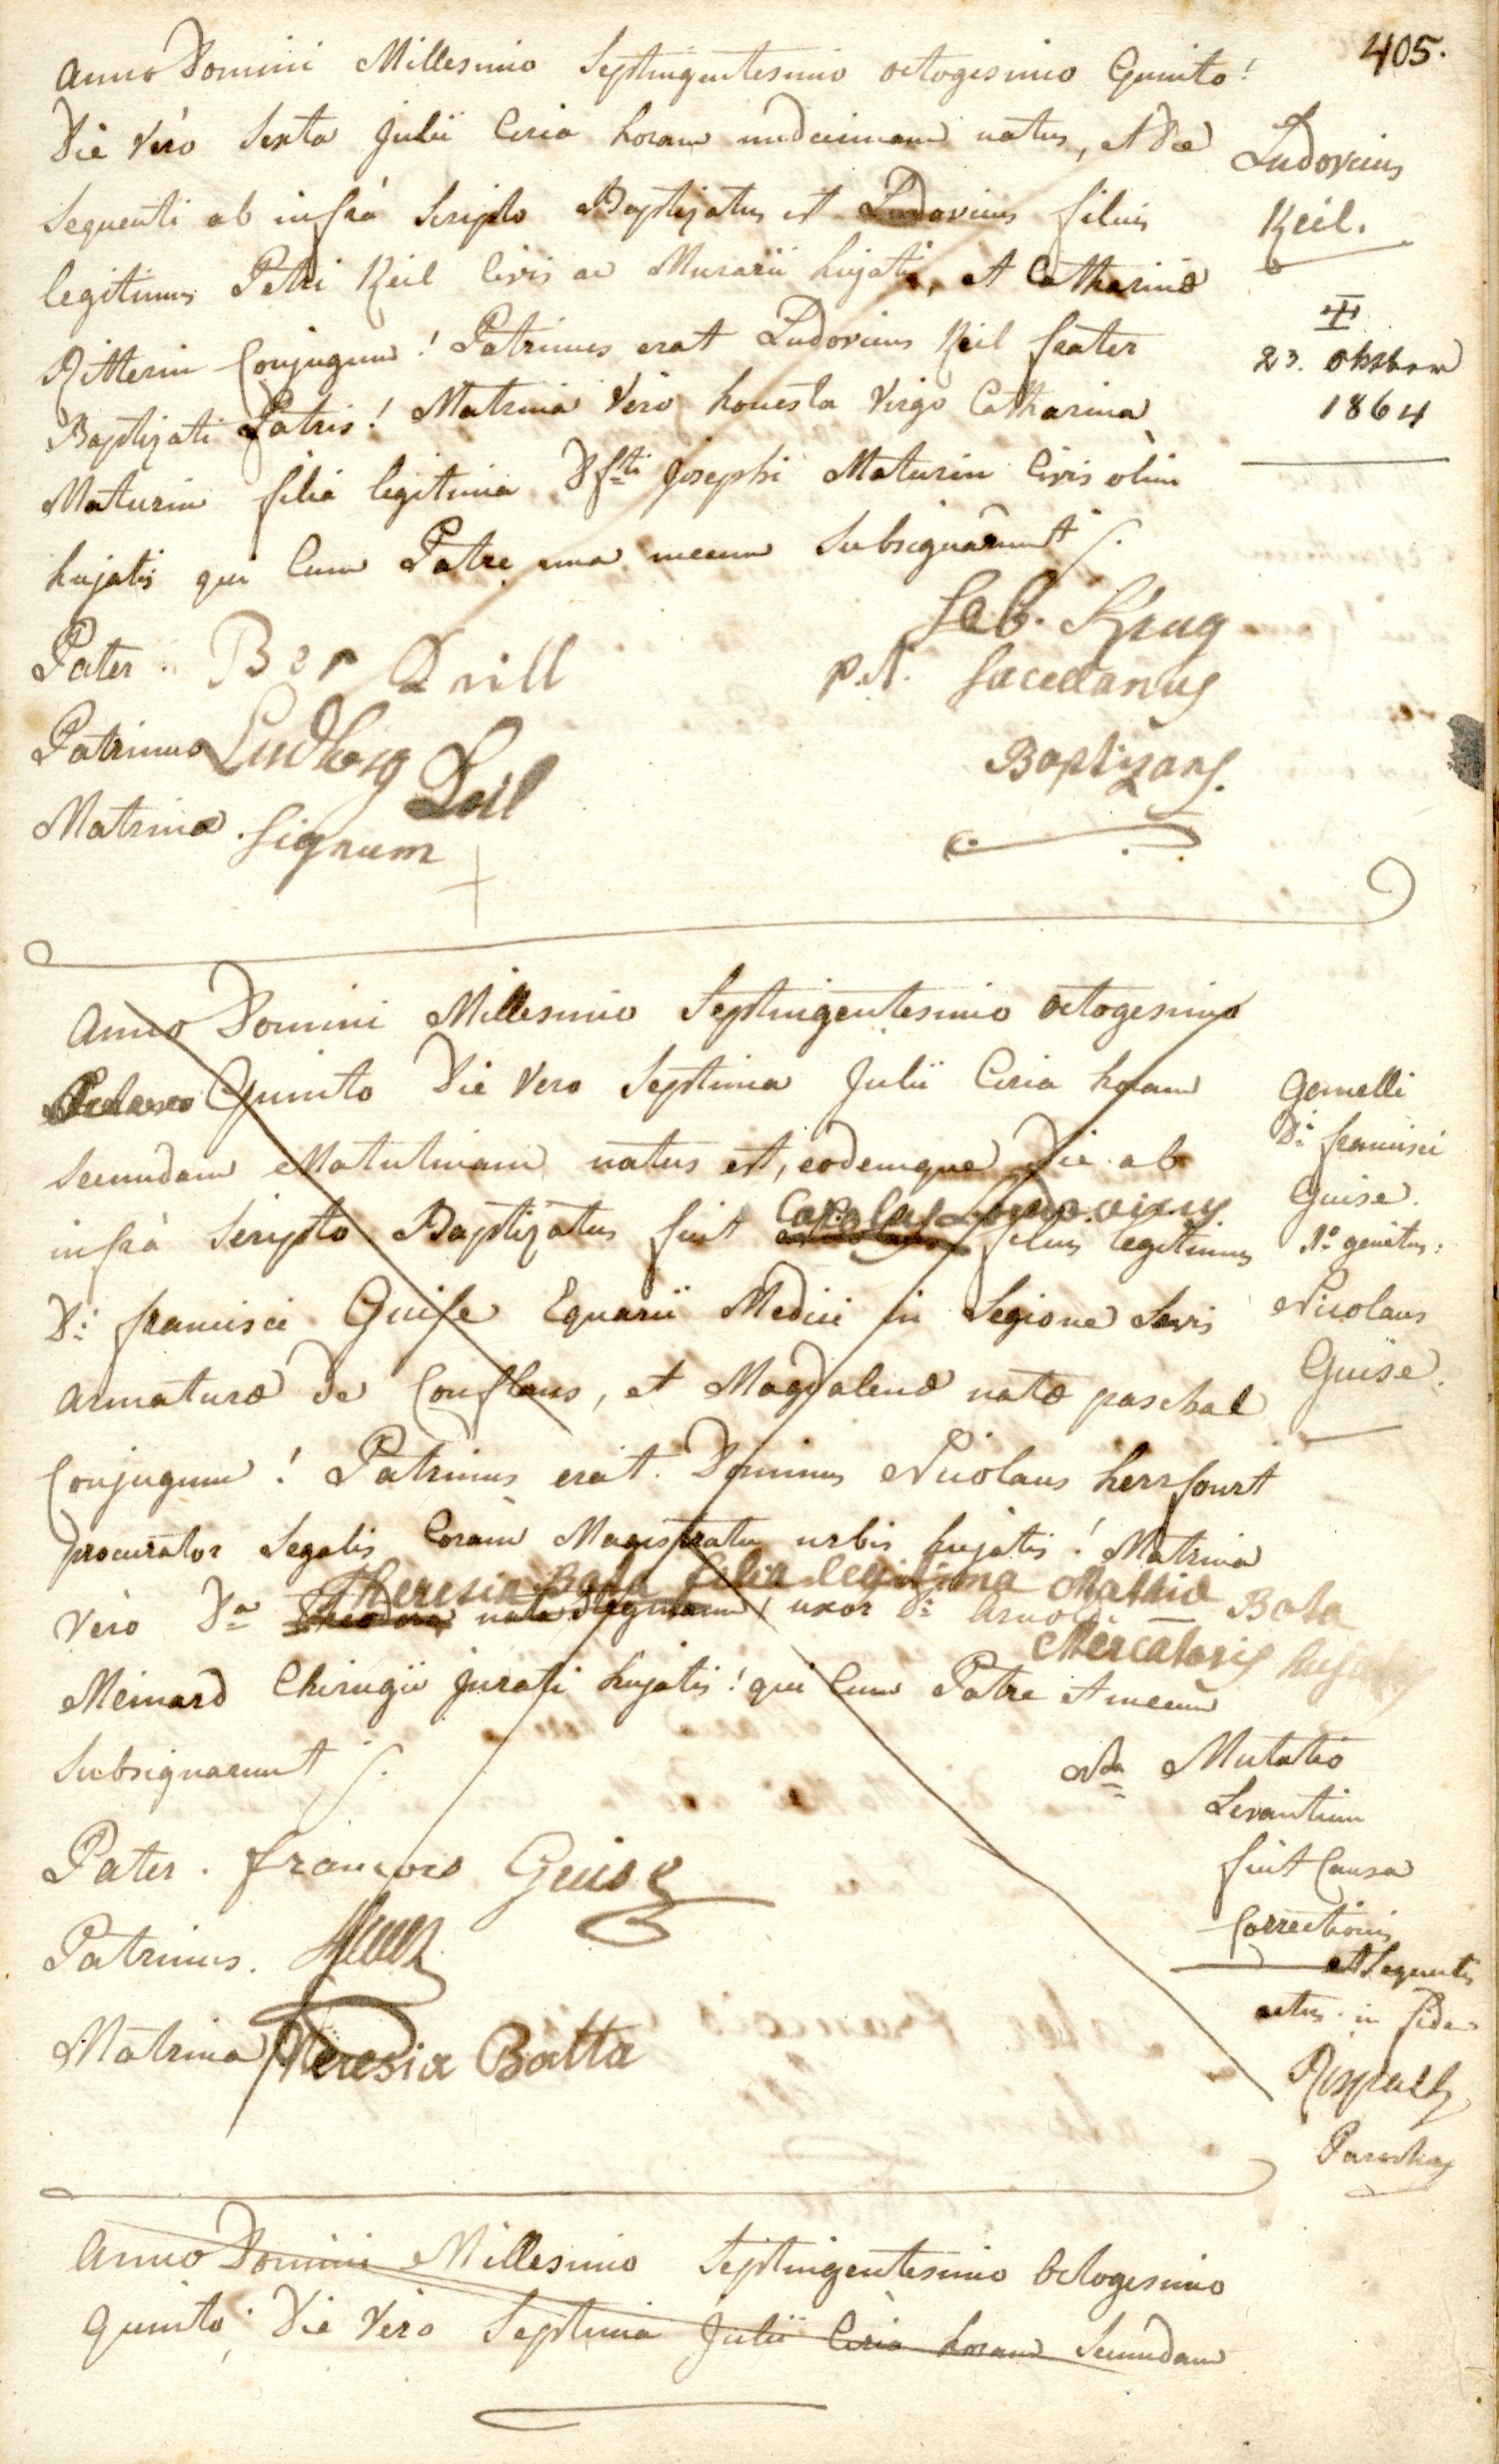 405.
Anno Domini Millesimo Septingentesimo octogesimo Quinto!
Die Vero Sexta Julii Circa horam undecimam natus, et Die
Sequenti ab infrà Scripto Baptizatus est Ludovicus filius
legitimus Petri Keil Civis ac Murarii hujatis, et Catharinæ
Ritterin Conjugum! Patrinus erat Ludovicus Keil frater
Baptizati Patris! Matrina Vero honesta Virgo Catharina
Maturin filia legitima Dfti Josephi Maturin Civis olim
hujatis qui Cum Patre una mecum Subsignârunt
Ludovicus
Keil.
23. oktober
1864
Seb. Krug
p.t. Sacellanus
Baptizans.
Pater.
Patrinus Ludwig Keil
Matrina. Signum +
Anno Domini Millesimo Septingentesimo octogesimo
Quinto Die Vero Septima Julii Circa horam
Secundam Matutinam natus est, eodemque Die ab
Carolus Ludovicus
infrà Scripto Baptizatus fuit filius legitimus
Di francisci Guise Equarii Medici in Legione Levis
Armaturæ de Conflans, et Magdalenæ natæ paschal
Conjugum! Patrinus erat. Dominus Nicolaus herrfourt
procurator Legalis Coram Magistratu urbis hujatis! Matrina
Theresia Bata filia legitima Mathiæ Bata
Vero Da Theodora nata uxor Di Arnoldi
Mercatoris hujatis
Meinard Chirugii jurati hujatis! qui Cum Patre et mecum
Subsignarunt
Gemelli
Di francisci
Guise.
1o genitus:
Nicolaus
Guise.
Nta Mutatio
Levantium
fuit Causa
Correctionis
et Sequentis
actus. in fidem
Parochus
Pater. francois Guise
Patrinus.
Matrina Theresia Batta
Anno Domini Millesimo Septingentesimo Octogesimo
Quinto; Die Vero Septima Julii Circa horam Secundam